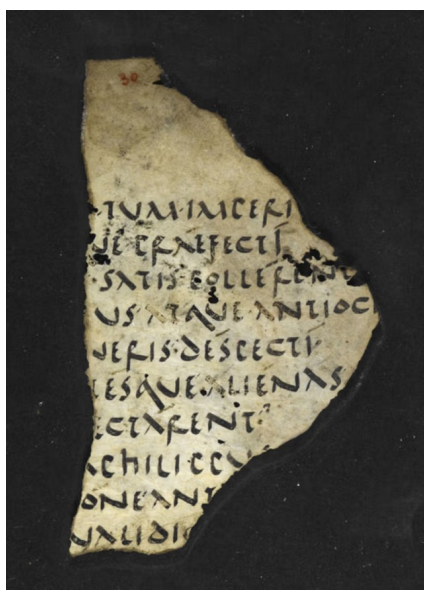 30
·TUM·IMPERI
UE·PRAEFECTI
·SATIS·POLLERENT
US·ATQUE·ANTIOC
UERIS·DESPECTI·
ESQUE·ALIENAS
ECTARENT
PHILIPPU
ONE·ANT
UALIDI